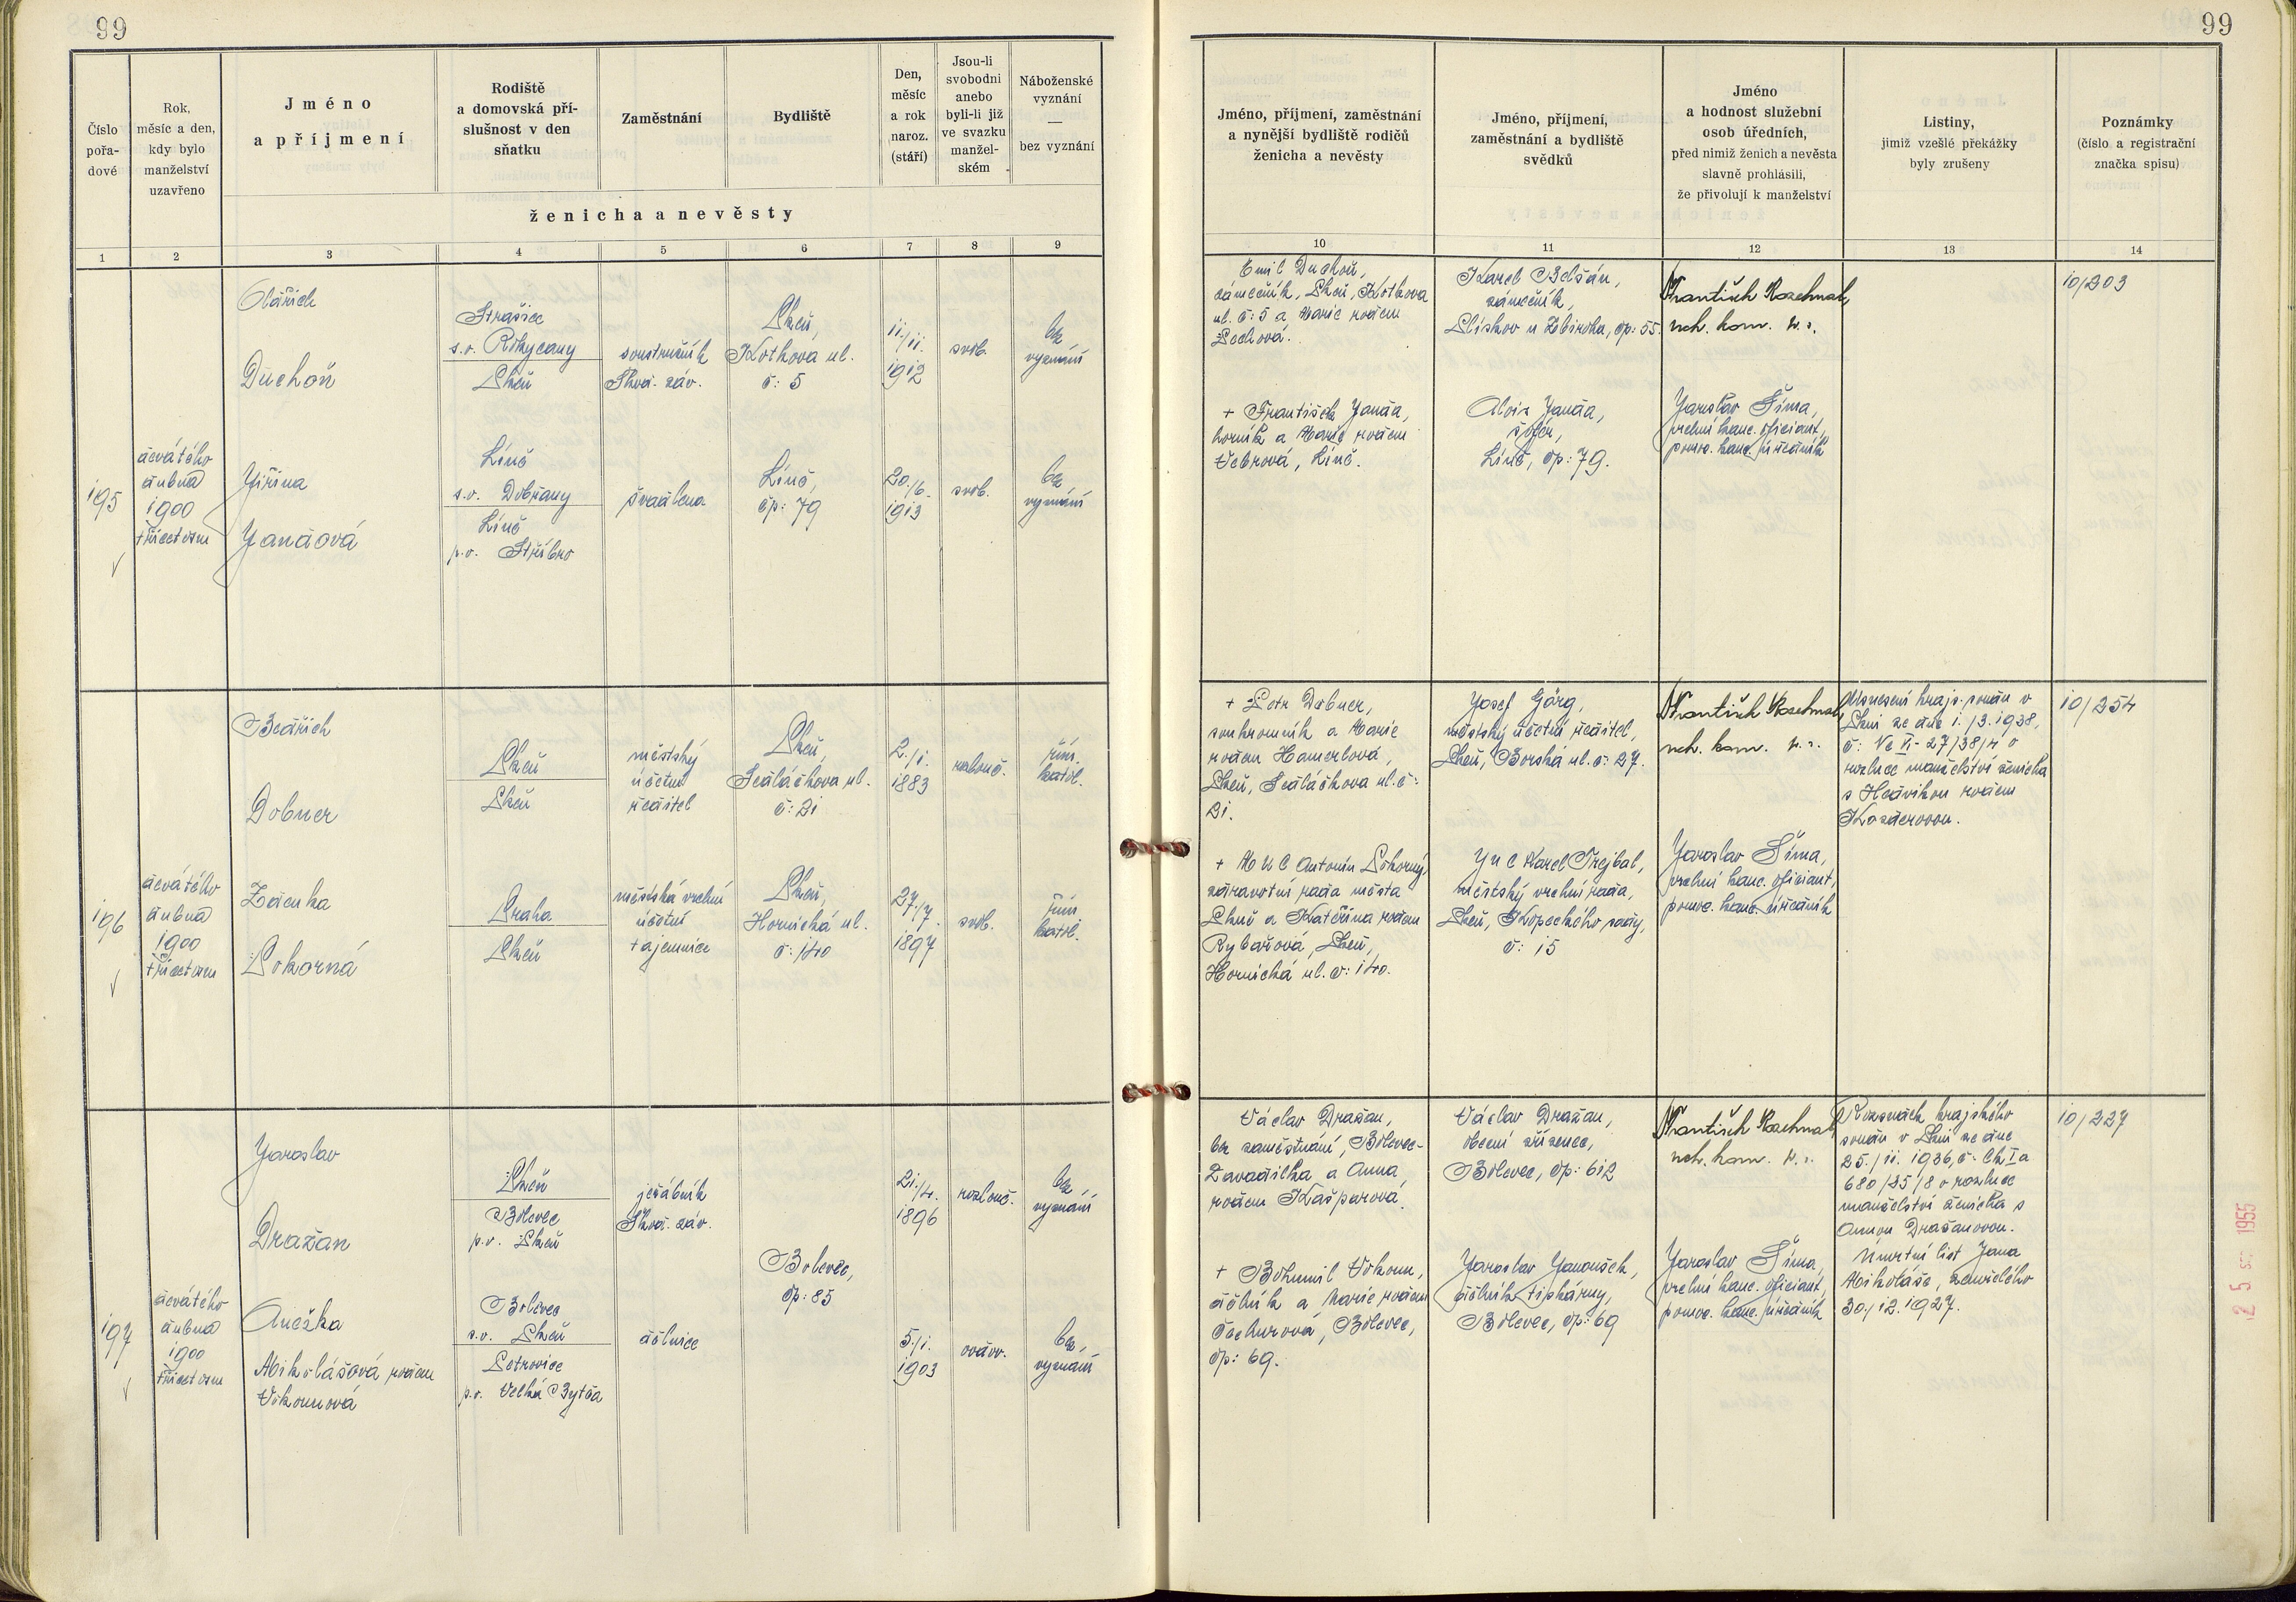 99
Číslo
pořa-
dové
Rok,
měsíc a den,
kdy bylo
manželství
uzavřeno
Jméno
a příjmení
Rodiště
a domovská pří-
slušnost v den
sňatku
Zaměstnání
Bydliště
Den,
měsíc
a rok
naroz.
(stáří)
Jsou-li
svobodni
anebo
byli-li již
ve svazku
manžel-
ském
Náboženské
vyznání
—
bez vyznání
ženicha a nevěsty
1 2 3 4 5 6 7 8 9
195
devátého
dubna
1900
třicet osm
Oldřich
Duchoň
Strašice
s.o. Rokycany
Plzeň
soustružník
Škod. záv.
Plzeň,
Kotkova ul.
č: 5
11./11.
1912
svob.
bez
vyznání
Jiřina
Jandová
Líně
s.o. Dobřany
Líně
p.o. Stříbro
švadlena
Líně,
čp: 79
20./6.
1913
svob.
bez
vyznání
196
devátého
dubna
1900
třicet osm
Bedřich
Dobner
Plzeň
Plzeň
městský
účetní
ředitel
Plzeň,
Sedláčkova ul.
č: 21
2./1.
1883
rozlouč.
řím.
katol.
Zdenka
Pokorná
Praha
Plzeň
městská vrchní
účetní
tajemnice
Plzeň,
Hornická ul.
č: 140
27./7.
1897
svob.
řím.
katol.
197
devátého
dubna
1900
třicet osm
Jaroslav
Dražan
Plzeň
Bolevec
p.o. Plzeň
jeřábník
Škod. záv.
Bolevec,
čp: 85
21./4.
1896
rozlouč.
bez
vyznání
Anežka
Mikolášová rozen
Vokounová
Bolevec
s.o. Plzeň
Petrovice
p.o. Velká Bytča
dělnice
5./1.
1903
ovdov.
bez
vyznání
99
Jméno, příjmení, zaměstnání
a nynější bydliště rodičů
ženicha a nevěsty
Jméno, příjmení,
zaměstnání a bydliště
svědků
Jméno
a hodnost služební
osob úředních,
před nimiž ženich a nevěsta
slavně prohlásili,
že přivolují k manželství
Listiny,
jimiž vzešlé překážky
byly zrušeny
Poznámky
(číslo a registrační
značka spisu)
10 11 12 13 14
Emil Duchoň,
zámečník, Plzeň, Kotkova
ul. č: 5 a Marie rozen
Pechová.
Karel Belšán,
zámečník,
Plískov u Zbiroha, čp: 55.
František
nch. kom. v. r.
10/203
+ František Janda,
horník a Marie rozen
Vebrová, Líně.
Alois Janda,
šofér,
Líně, čp: 79.
Jaroslav Šíma,
vrchní kanc. oficiant,
pomoc. kanc. úředník
+ Petr Dobner,
soukromník a Marie
rozen Hamerlová,
Plzeň, Sedláčkova ul. č:
21.
Josef Görg,
městský účetní ředitel,
Plzeň, Borská ul. č: 27.
František
nch. kom. v. r.
Usnesení krajs. soudu v
Plzni ze dne 1./3. 1938,
č: Nc VI- 27/38/4 o
rozluce manželství ženicha
s Hedvikou rozen
Kozderovou.
10/254
+ MUC Antonín Pokorný,
zdravotní rada města
Plzně a Kateřina rozen
Rybařová, Plzeň,
Hornická ul. č: 140.
JUC Karel Trejbal,
městský vrchní rada,
Plzeň, Kopeckého sady,
č: 15
Jaroslav Šíma,
vrchní kanc. oficiant,
pomoc. kanc. úředník
Václav Dražan,
bez zaměstnání, Bolevec-
Zavadilka a Anna,
rozen Kašparová.
Václav Dražan,
obecní zřízenec,
Bolevec, čp: 612
František
nch. kom. v. r.
Rozsudek krajského
soudu v Plzni ze dne
25./11. 1936, č. Ck I a
680/35/8 o rozluce
manželství ženicha s
Annou Dražanovou.
Úmrtní list Jana
Mikoláše, zemřelého
30./12. 1927.
10/227
+ Bohumil Vokoun,
dělník a Marie rozen
Tachurová, Bolevec,
čp: 69.
Jaroslav Janoušek,
dělník tiskárny,
Bolevec, čp: 69
Jaroslav Šíma,
vrchní kanc. oficiant,
pomoc. kanc. úředník
1955